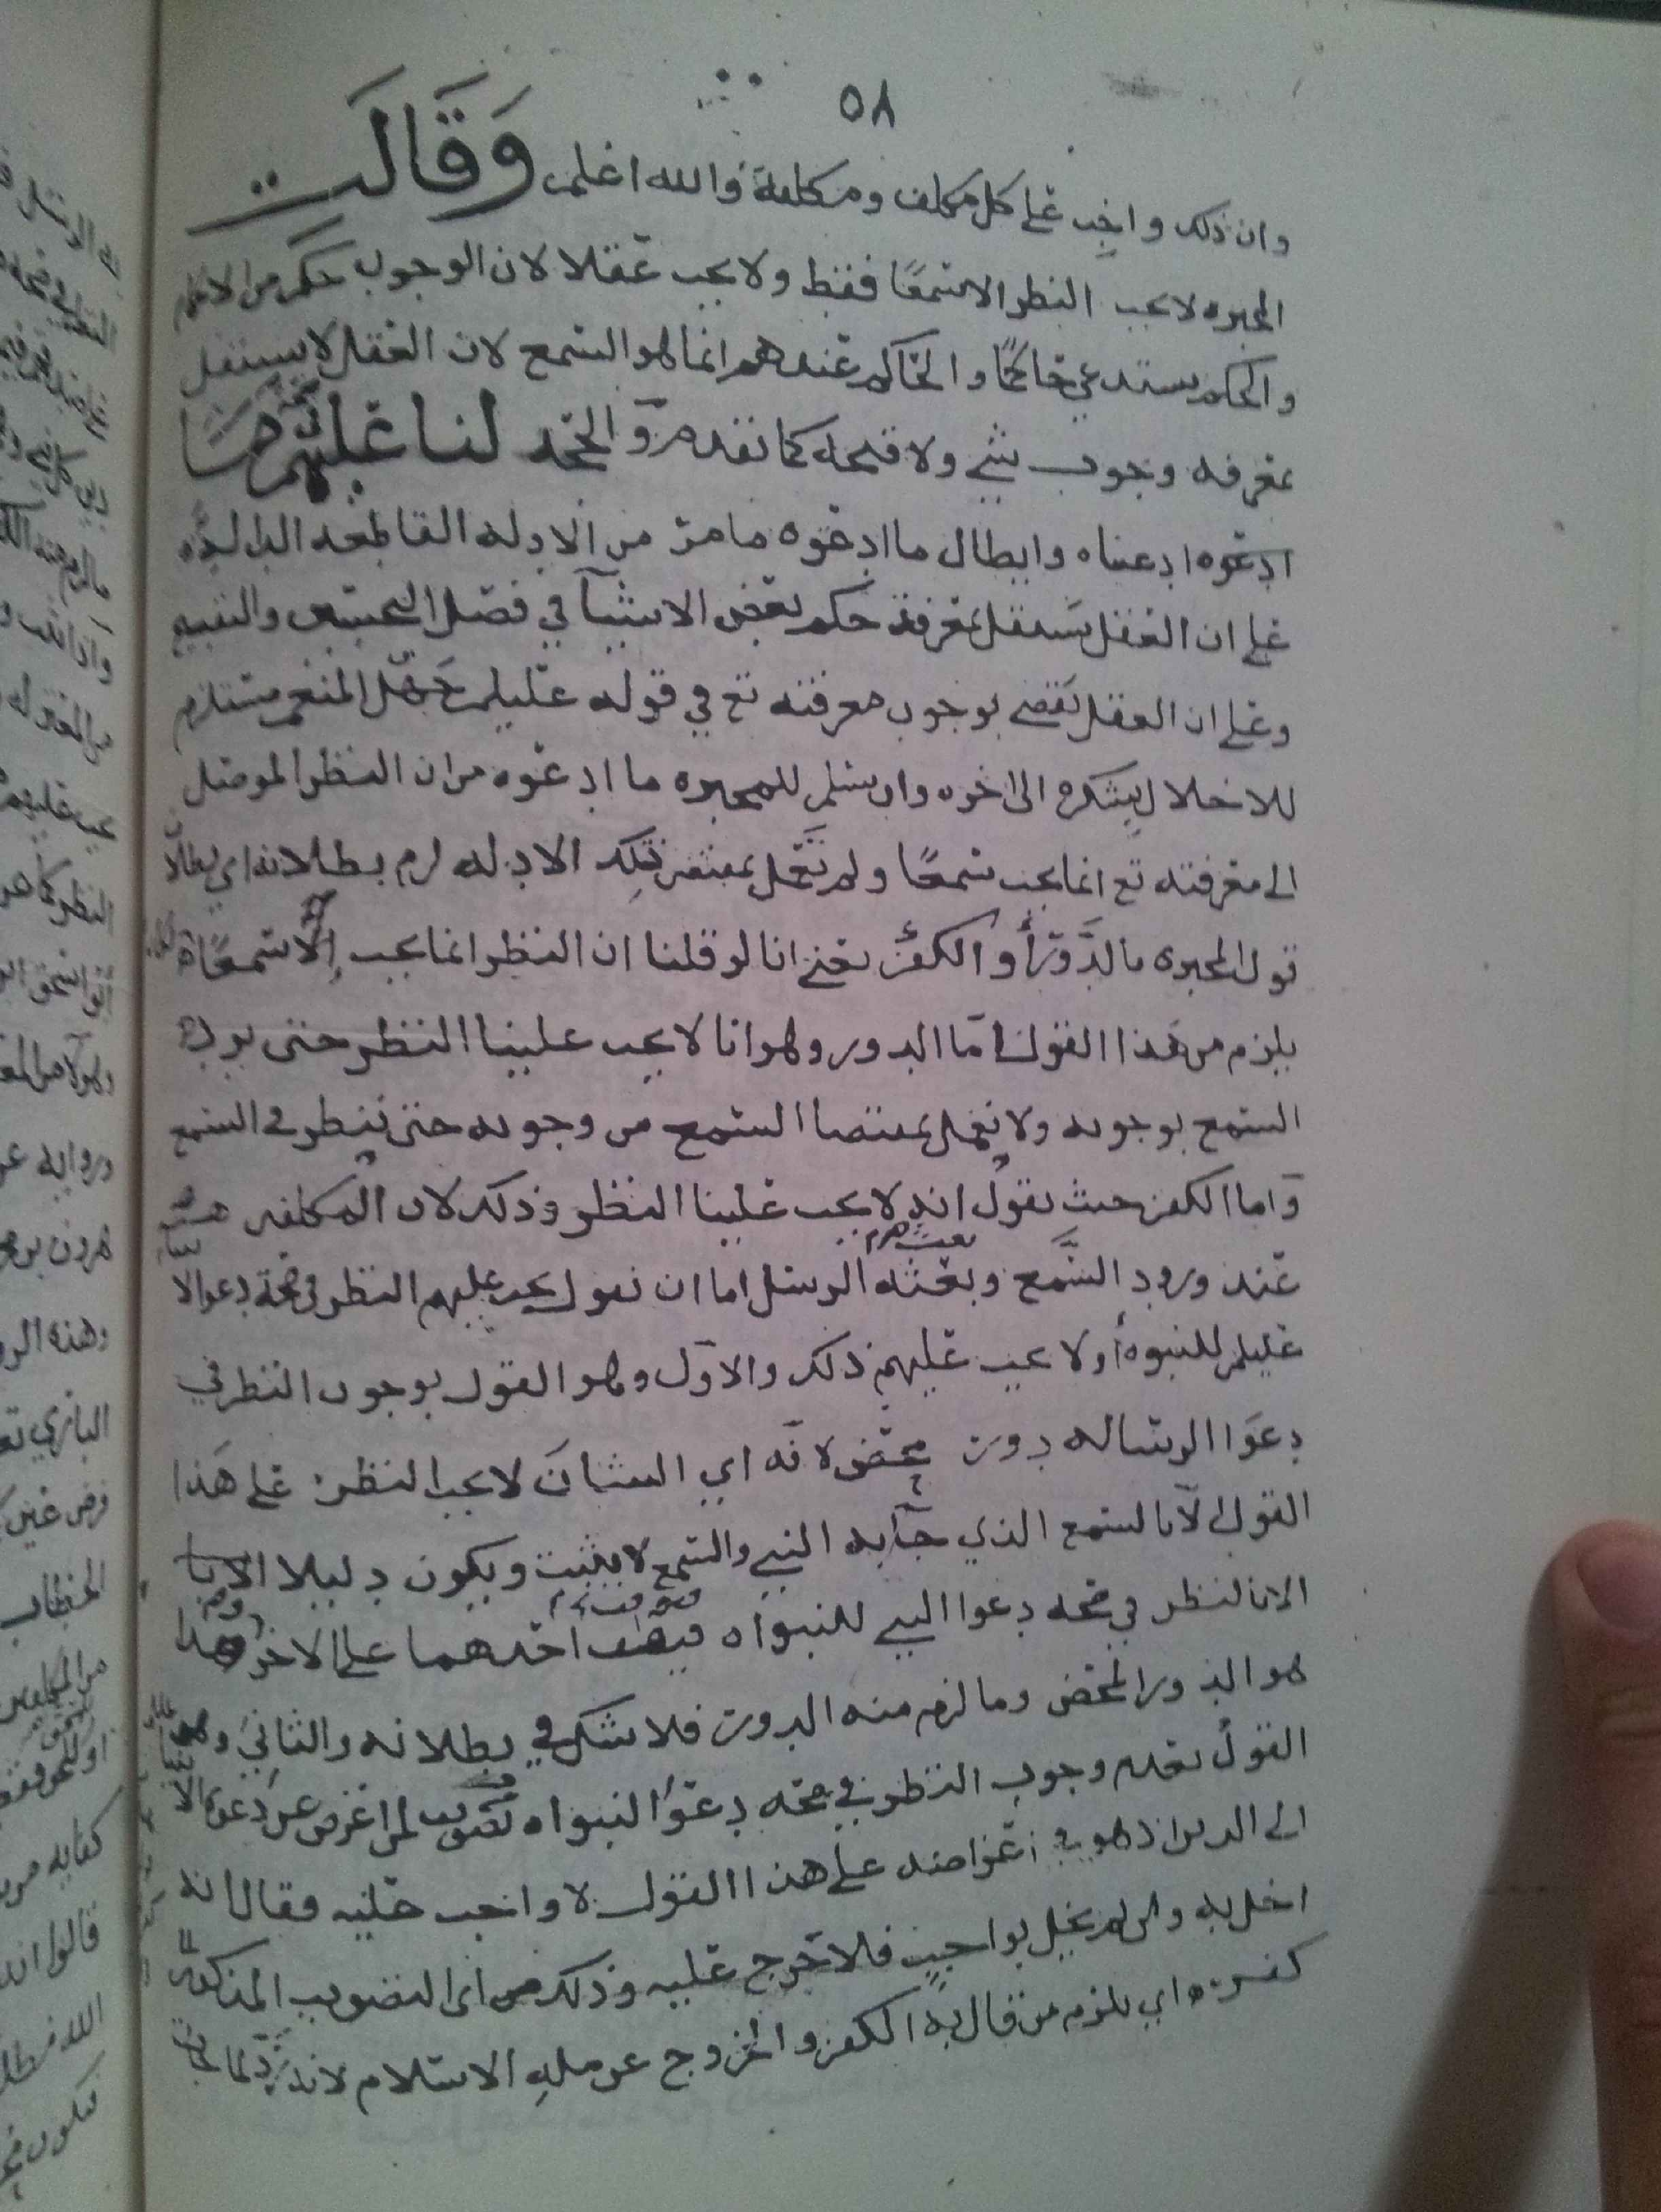 ٥٨
وان ذلك واجب على كل مكلف ومكلفة والله اعلم وَقَالَت
المجبره لا يجب النظر الا سمعًا فقط ولا يجب عقلا لان الوجوب حكم من الاحكام
والحكم يستدعي حاكمًا والحاكم عندهم انما هو السمع لان العقل لا يستقل
بمعرفه وجوب شي ولا قبحه كما تقدم والحجه لنا عليهم
ادعوه ادعيناه وابطال ما ادعوه ما مر من الادله القاطعه الداله
على ان العقل يستقل بمعرفة حكم بعض الاشيآ في فصل التحسين والتقبيح
وعلى ان العقل يقضي بوجوب معرفته تع في قوله عليلم جهل المنعم مستلزم
للاخلال بشكره الى اخره وان سلم للمجبره ما ادعوه من ان النظر الموصل
الى معرفته تع انما يجب سمعًا ولم نعمل بمقتضى تلك الادله لزم بطلانه اي بطلان
قول المجبره بالدَّور أو الكفر يعني انا لو قلنا ان النظر انما يجب سمعًا
يلزم من هذا القول امّا الدور وهو انا لا يجب علينا النظر حتى يرد
السمع بوجوبه ولا نعمل بمقتضا السمع من وجوبه حتى ننظر في السمع
وَاما الكفر حيث نقول انه لا يجب علينا النظر وذلك لان المكلفين
عند ورود السَّمع وبعثه الرسل اما ان نقول يجب عليهم النظر في صحة دعوا الانبيا
عليلم للنبوة أو لا يجب عليهم ذلك والاوّل وهو القول بوجوب النظر في
دعوا الرساله دور محض لانه اي الشان لا يجب النظر على هَذا
القول الّا بالسمع الذي جآ به النبي والسمع لا يثبت ويكون دليلا الا
الا بالنظر في صحه دعوا النبي للنبواه احدهما على الاخر وهذا
هو الدور المحض وما لزم منه الدور فلا شك في بطلانه والثاني وهو
القول بعدم وجوب النظر في صحه دعوا النبواه تصويب لمن اعرض عن دعوة الانبيا
الى الدين اذ هو في اعراضه على هذا القول لا واجب عليه فقال انه
اخل به ومن لم يخل بواجب فلا حرج عليه وذلك اي التصويب المذكور
كفر اي يلزم من قال به الكفر والخروج عن مله الاسلام لانه ردّ لما